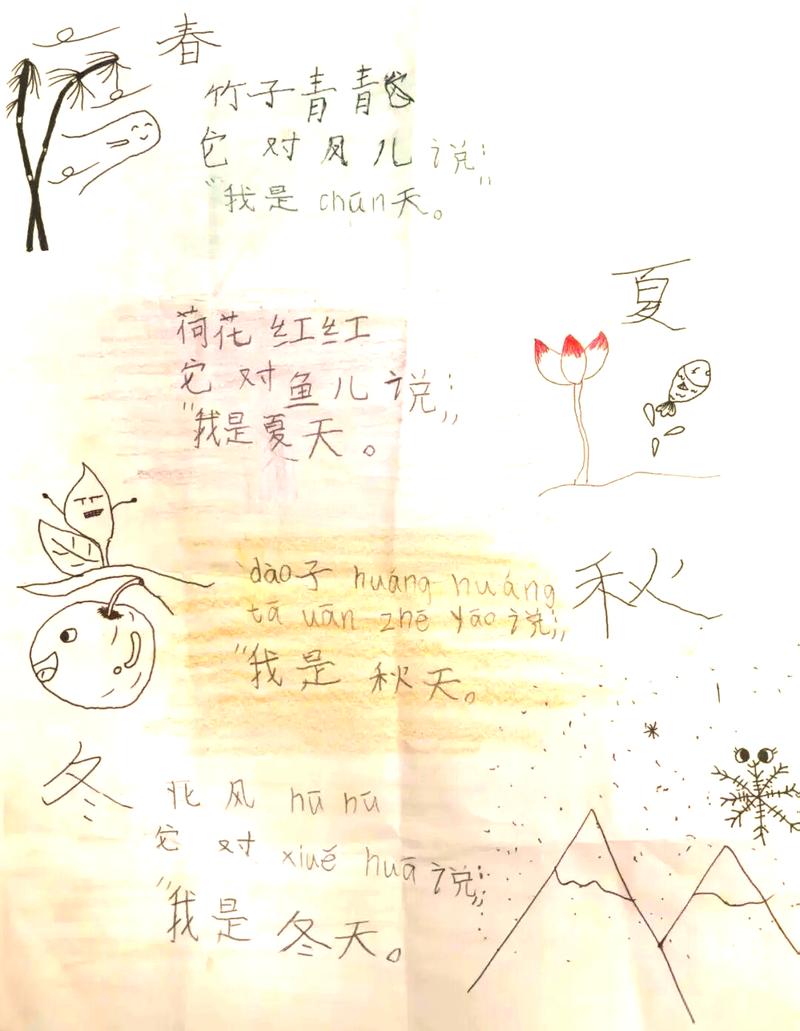 春
竹子青青
它对风儿说:"
"我是chūn天。
夏
荷花红红
它对鱼儿说:"
"我是夏天。
秋
dào子huáng huáng
tā uān zhē yāo说:"
"我是秋天。
冬
北风hū hū
它对xiuě huā说:"
"我是冬天。